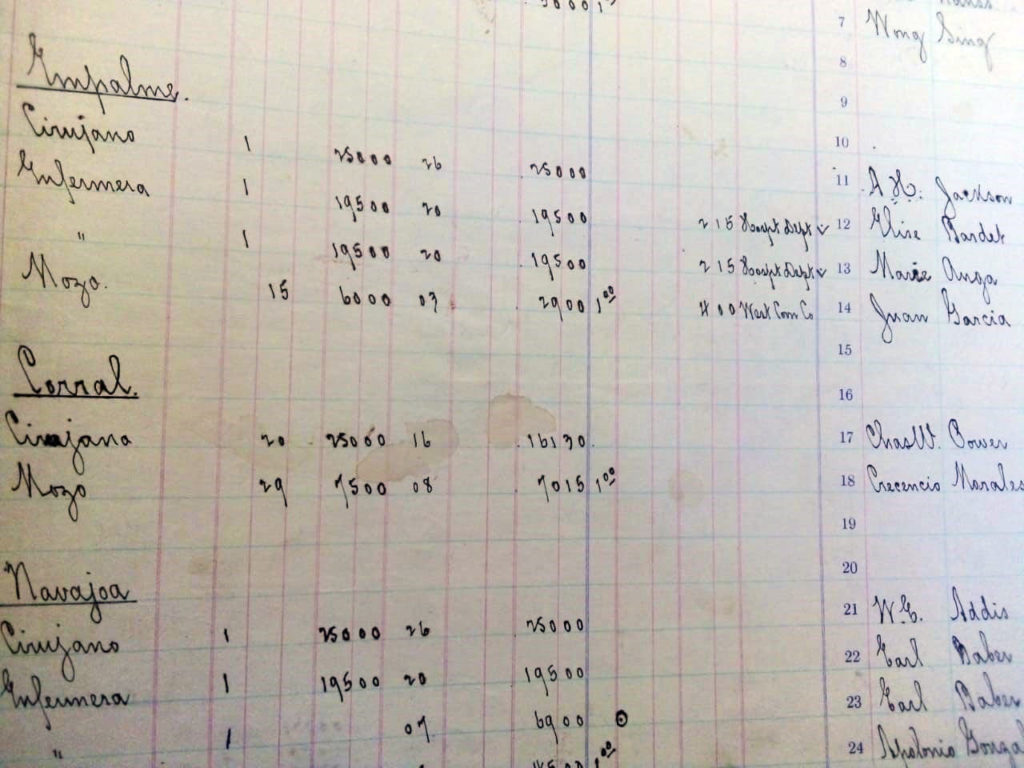 7 Wong Sing
8
Empalme.
9
Cirujano 1 25000 26 25000 10
Enfermera 1 19500 20 19500 11 A. H. Jackson
" 1 19500 20 19500 215 Hospt Dept ✓ 12 Elise Bardet
Mozo. 15 6000 03 2900 1⁰⁰ 215 Hospt Dept ✓ 13 Marie Anga
400 West Com Co 14 Juan Garcia
15
Corral.
16
Cirujano 20 25000 16 16130 17 Chas W. Cower
Mozo 29 7500 08 7015 1⁰⁰ 18 Crecencio Morales
19
Navajoa
20
Cirujano 1 25000 26 25000 21 W. E. Addis
Enfermera 1 19500 20 19500 22 Earl Baber
" 1 07 6900 23 Earl Baber
24 Apolonio